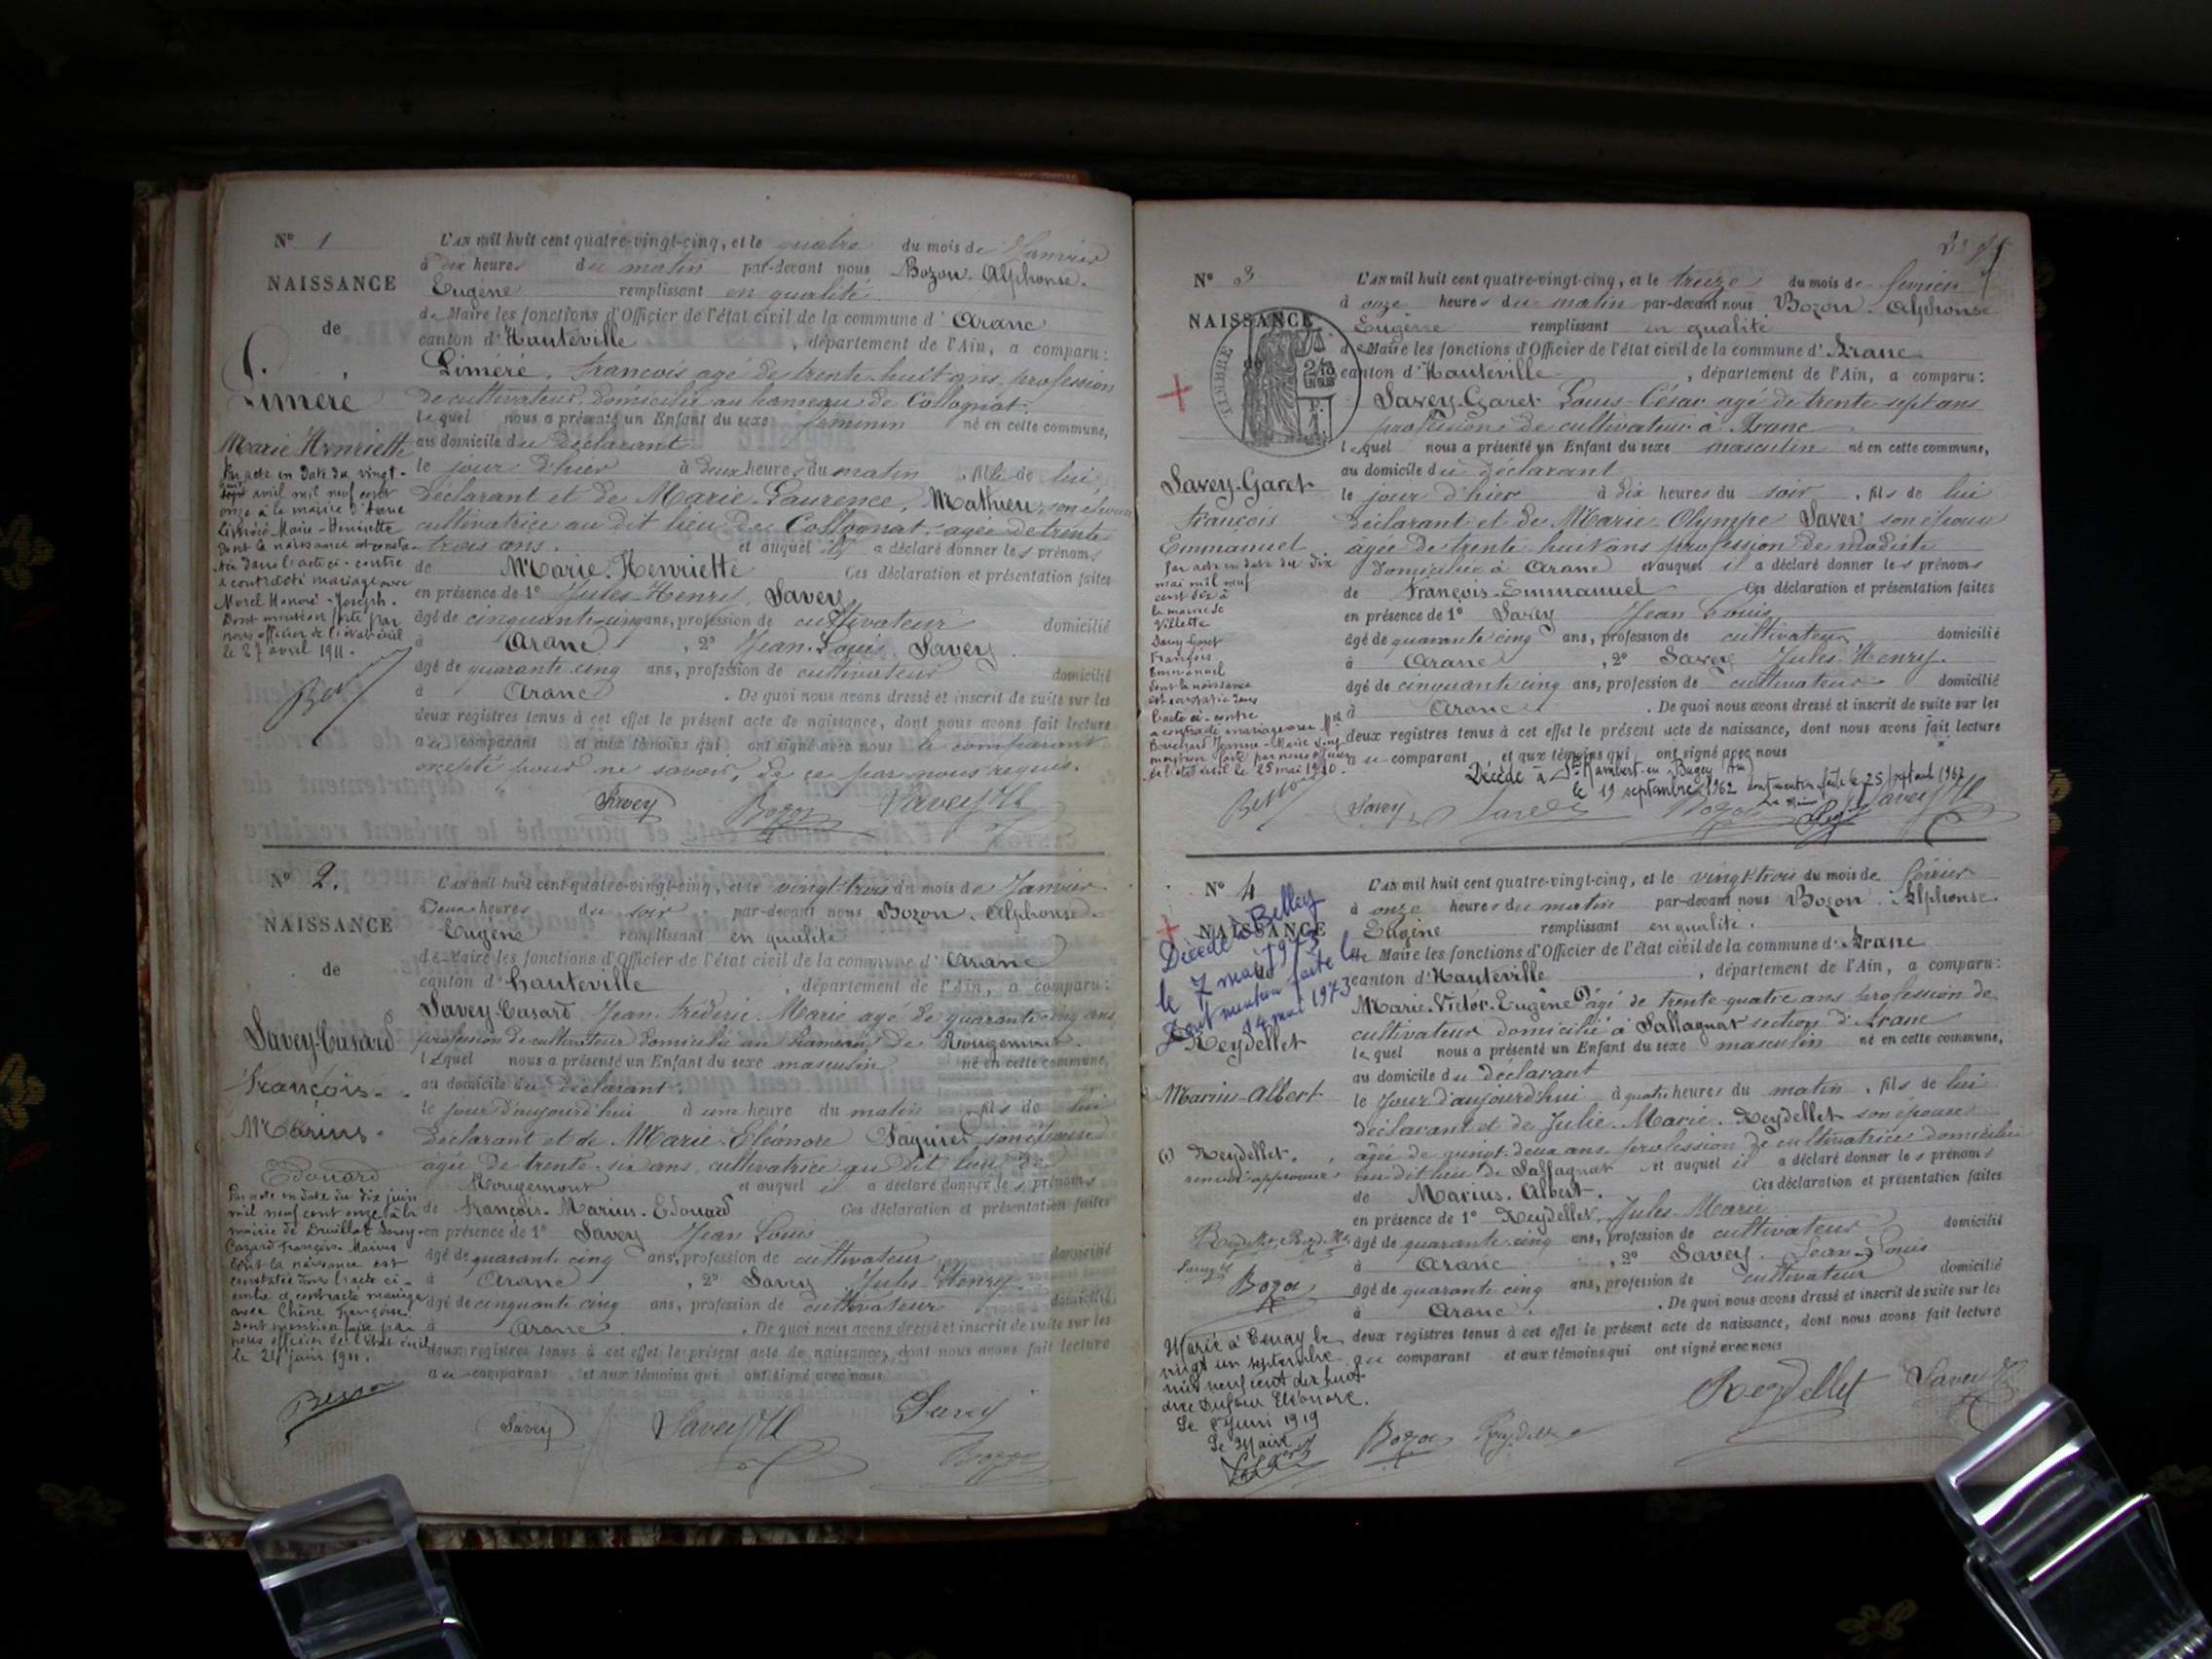 N° 1
NAISSANCE
de
Liméré
Marie Henriette
Par acte en date du vingt-
sept avril mil neuf cent
onze à la mairie d'Aranc
Liméré Marie-Henriette
dont la naissance est consta-
tée dans l'acte ci-contre
a contracté mariage avec
Morel Honoré-Joseph.
Dont mention faite par
nous officier de l'état civil
le 27 avril 1911.
L'AN mil huit cent quatre-vingt-cinq, et le quatre du mois de Janvier
à dix heures du matin par-devant nous Bozon Alphonse
Eugène remplissant en qualité
de Maire les fonctions d'Officier de l'état civil de la commune d'Aranc
canton d'Hauteville, département de l'Ain, a comparu:
Liméré, François agé de trente huit ans profession
de cultivateur domicilié au hameau de Collognat.
lequel nous a présenté un Enfant du sexe féminin né en cette commune,
au domicile du déclarant
le jour d'hier à deux heures du matin, fille de lui,
déclarant et de Marie-Laurence, Mathieu, son épouse
cultivatrice au dit lieu de Collognat, agée de trente
trois ans. et auquel il a déclaré donner les prénoms
de Marie-Henriette Ces déclaration et présentation faites
en présence de 1° Jules-Henry Savey
âgé de cinquante-cinq ans, profession de cultivateur domicilié
à Aranc, 2° Jean-Louis Savey
âgé de quarante cinq ans, profession de cultivateur domicilié
à Aranc. De quoi nous avons dressé et inscrit de suite sur les
deux registres tenus à cet effet le présent acte de naissance, dont nous avons fait lecture
au comparant et aux témoins qui ont signé avec nous le comparant
excepté pour ne savoir, de ce par nous requis.
Savey Bozon Savey JH
N° 2.
NAISSANCE
de
Savey-Casard
François-
Marius-
Edouard
Par acte en date du dix juin
mil neuf cent onze à la
mairie de Druillat Savey-
Cazard François-Marius
dont la naissance est
constatée dans l'acte ci-
contre a contracté mariage
avec Chêne Françoise.
Dont mention faite par
nous officier de l'état civil
le 24 juin 1911.
Besson
L'AN mil huit cent quatre-vingt-cinq, et le vingt-trois du mois de Janvier
Deux heures du soir par-devant nous Bozon Alphonse
Eugène remplissant en qualité
de Maire les fonctions d'Officier de l'état civil de la commune d'Aranc
canton d'hauteville, département de l'Ain, a comparu:
Savey-Casard Jean Frédéric Marie agé de quarante-cinq ans,
profession de cultivateur domicilié au hameau de Rougemont.
lequel nous a présenté un Enfant du sexe masculin né en cette commune,
au domicile du déclarant
le jour d'aujourd'hui à une heure du matin fils de lui
déclarant et de Marie-Eléonore son épouse
agée de trente-six ans, cultivatrice au dit lieu de
Rougemont et auquel il a déclaré donner les prénoms
de François-Marius-Edouard Ces déclaration et présentation faites
en présence de 1° Savey Jean Louis
âgé de quarante cinq ans, profession de cultivateur domicilié
à Aranc, 2° Savey Jules Henry
âgé de cinquante cinq ans, profession de cultivateur domicilié
à Aranc. De quoi nous avons dressé et inscrit de suite sur les
deux registres tenus à cet effet le présent acte de naissance, dont nous avons fait lecture
au comparant et aux témoins qui ont signé avec nous
Savey Savey JH Savey
Bozon
N° 3
NAISSANCE
de
TIMBRE
Savey-Garet
François
Emmanuel
Par acte en date du dix
mai mil neuf
cent dix à
la mairie de
Villette
Savey-Garet
François
Emmanuel
dont la naissance
est constatée dans
l'acte ci-contre
a contracté mariage avec Melle
Bouchard Jeanne-Marie Dont
mention faite par nous officier
de l'état civil le 25 mai 1910.
Besson
L'AN mil huit cent quatre-vingt-cinq, et le treize du mois de février
à onze heures du matin par-devant nous Bozon Alphonse
Eugène remplissant en qualité
de Maire les fonctions d'Officier de l'état civil de la commune d'Aranc
canton d'Hauteville, département de l'Ain, a comparu:
Savey-Garet Louis-César agé de trente sept ans
profession de cultivateur à Aranc
lequel nous a présenté un Enfant du sexe masculin né en cette commune,
au domicile du déclarant
le jour d'hier à dix heures du soir, fils de lui
déclarant et de Marie Olympe Savey son épouse
âgée de trente huit ans profession de modiste
domiciliée à Aranc et auquel il a déclaré donner les prénoms
de François-Emmanuel Ces déclaration et présentation faites
en présence de 1° Savey Jean Louis
âgé de quarante cinq ans, profession de cultivateur domicilié
à Aranc, 2° Savey Jules-Henry.
âgé de cinquante cinq ans, profession de cultivateur domicilié
à Aranc. De quoi nous avons dressé et inscrit de suite sur les
deux registres tenus à cet effet le présent acte de naissance, dont nous avons fait lecture
au comparant et aux témoins qui ont signé avec nous
Décédé à St Rambert-en-Bugey Ain
le 19 septembre 1962 dont mention faite le 25 septemb 1962
Le Maire
Savey Bozon Savey JH
N° 4
NAISSANCE
de
Décédé à Belley
le 7 mai 1973
Dont mention faite le
14 mai 1973
Reydellet
Marius-Albert
(1) Reydellet.
renvoi approuvé
Bozon
Marié à Tenay le
vingt un septembre
mil neuf cent dix huit
avec Dufour Eléonore.
Le 8 Juin 1919
Le Maire
L'AN mil huit cent quatre-vingt-cinq, et le vingt-trois du mois de février
à onze heures du matin par-devant nous Bozon Alphonse
Eugène remplissant en qualité.
de Maire les fonctions d'Officier de l'état civil de la commune d'Aranc
canton d'Hauteville, département de l'Ain, a comparu:
Marie-Victor-Eugène (1) âgé de trente-quatre ans profession de
cultivateur domicilié à Pallagnat section d'Aranc
lequel nous a présenté un Enfant du sexe masculin né en cette commune,
au domicile du déclarant
le Jour d'aujourd'hui à quatre heures du matin, fils de lui
déclarant et de Julie-Marie Reydellet son épouse
âgée de vingt-deux ans profession de cultivatrice domiciliée
au dit lieu de et auquel il a déclaré donner les prénoms
de Marius-Albert. Ces déclaration et présentation faites
en présence de 1° Reydellet, Jules-Marie
âgé de quarante-cinq ans, profession de cultivateur domicilié
à Aranc, 2° Savey Jean-Louis
âgé de quarante cinq ans, profession de cultivateur domicilié
à Aranc. De quoi nous avons dressé et inscrit de suite sur les
deux registres tenus à cet effet le présent acte de naissance, dont nous avons fait lecture
au comparant et aux témoins qui ont signé avec nous
Reydellet Savey
Bozon Reydellet